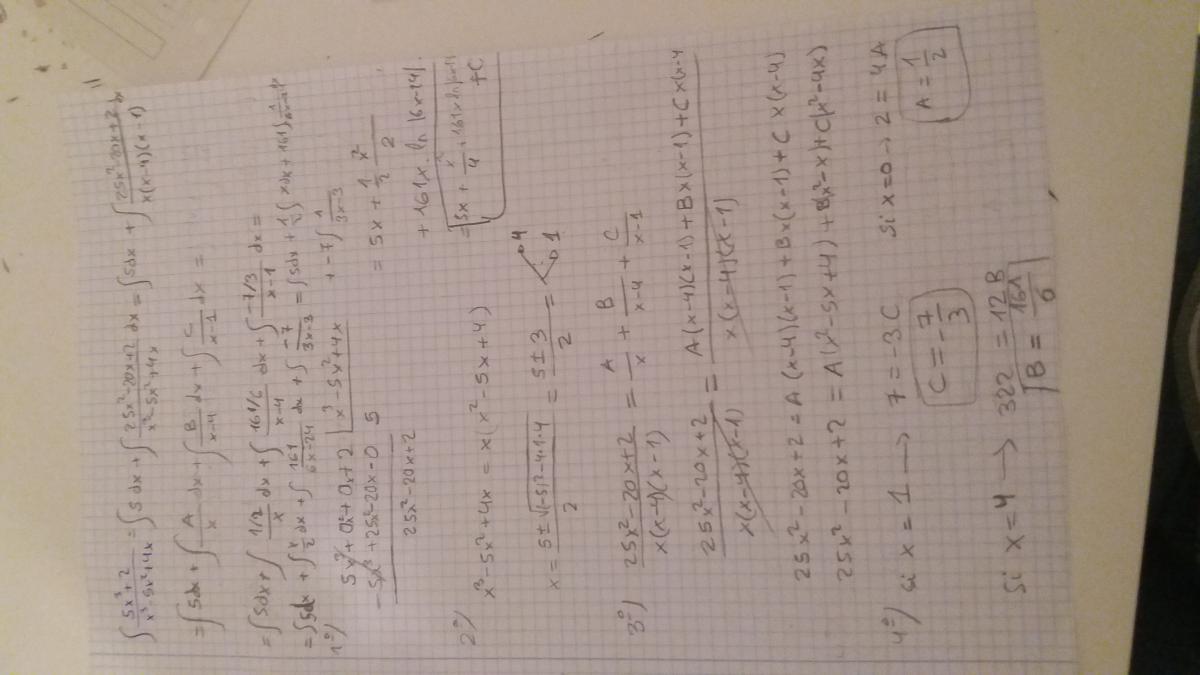 ∫ 5x³+2 / x³-5x²+4x = ∫ 5 dx + ∫ 25x²-20x+2 / x³-5x²+4x dx = ∫ 5dx + ∫ 25x²-20x+2 / x(x-4)(x-1) dx =
= ∫ 5dx + ∫ A/x dx + ∫ B/x-4 dx + ∫ C/x-1 dx =
= ∫ 5dx + ∫ 1/2 / x dx + ∫ 161/6 / x-4 dx + ∫ -7/3 / x-1 dx =
= ∫ 5dx + ∫ x/2 dx + ∫ 161 / 6x-24 dx + ∫ -7 / 3x-3 = ∫ 5dx + 1/2 ∫ x dx + 161 ∫
+ -7 ∫ 1 / 3x-3
= 5x + 1/2 x²/2
+ 161x · ln |6x-24| ·
+ C
1º)
5x³ + 0x² + 0x + 2 | x³-5x²+4x
-5x³ + 25x² - 20x - 0 5
25x² - 20x + 2
2º)
x³ - 5x² + 4x = x(x² - 5x + 4)
x = 5 ± √(-5)²-4·1·4 / 2 = 5 ± 3 / 2 = 4 1
3º) 25x²-20x+2 / x(x-4)(x-1) = A/x + B/x-4 + C/x-1
25x²-20x+2 / x(x-4)(x-1) = A(x-4)(x-1) + Bx(x-1) + Cx(x-4 / x(x-4)(x-1)
25x²-20x+2 = A(x-4)(x-1) + Bx(x-1) + Cx(x-4)
25x²-20x+2 = A(x²-5x+4) + B(x²-x) + C(x²-4x)
4º) si x = 1 → 7 = -3C Si x = 0 → 2 = 4A
C = -7/3 A = 1/2
Si x = 4 → 322 = 12B
B = 161/6